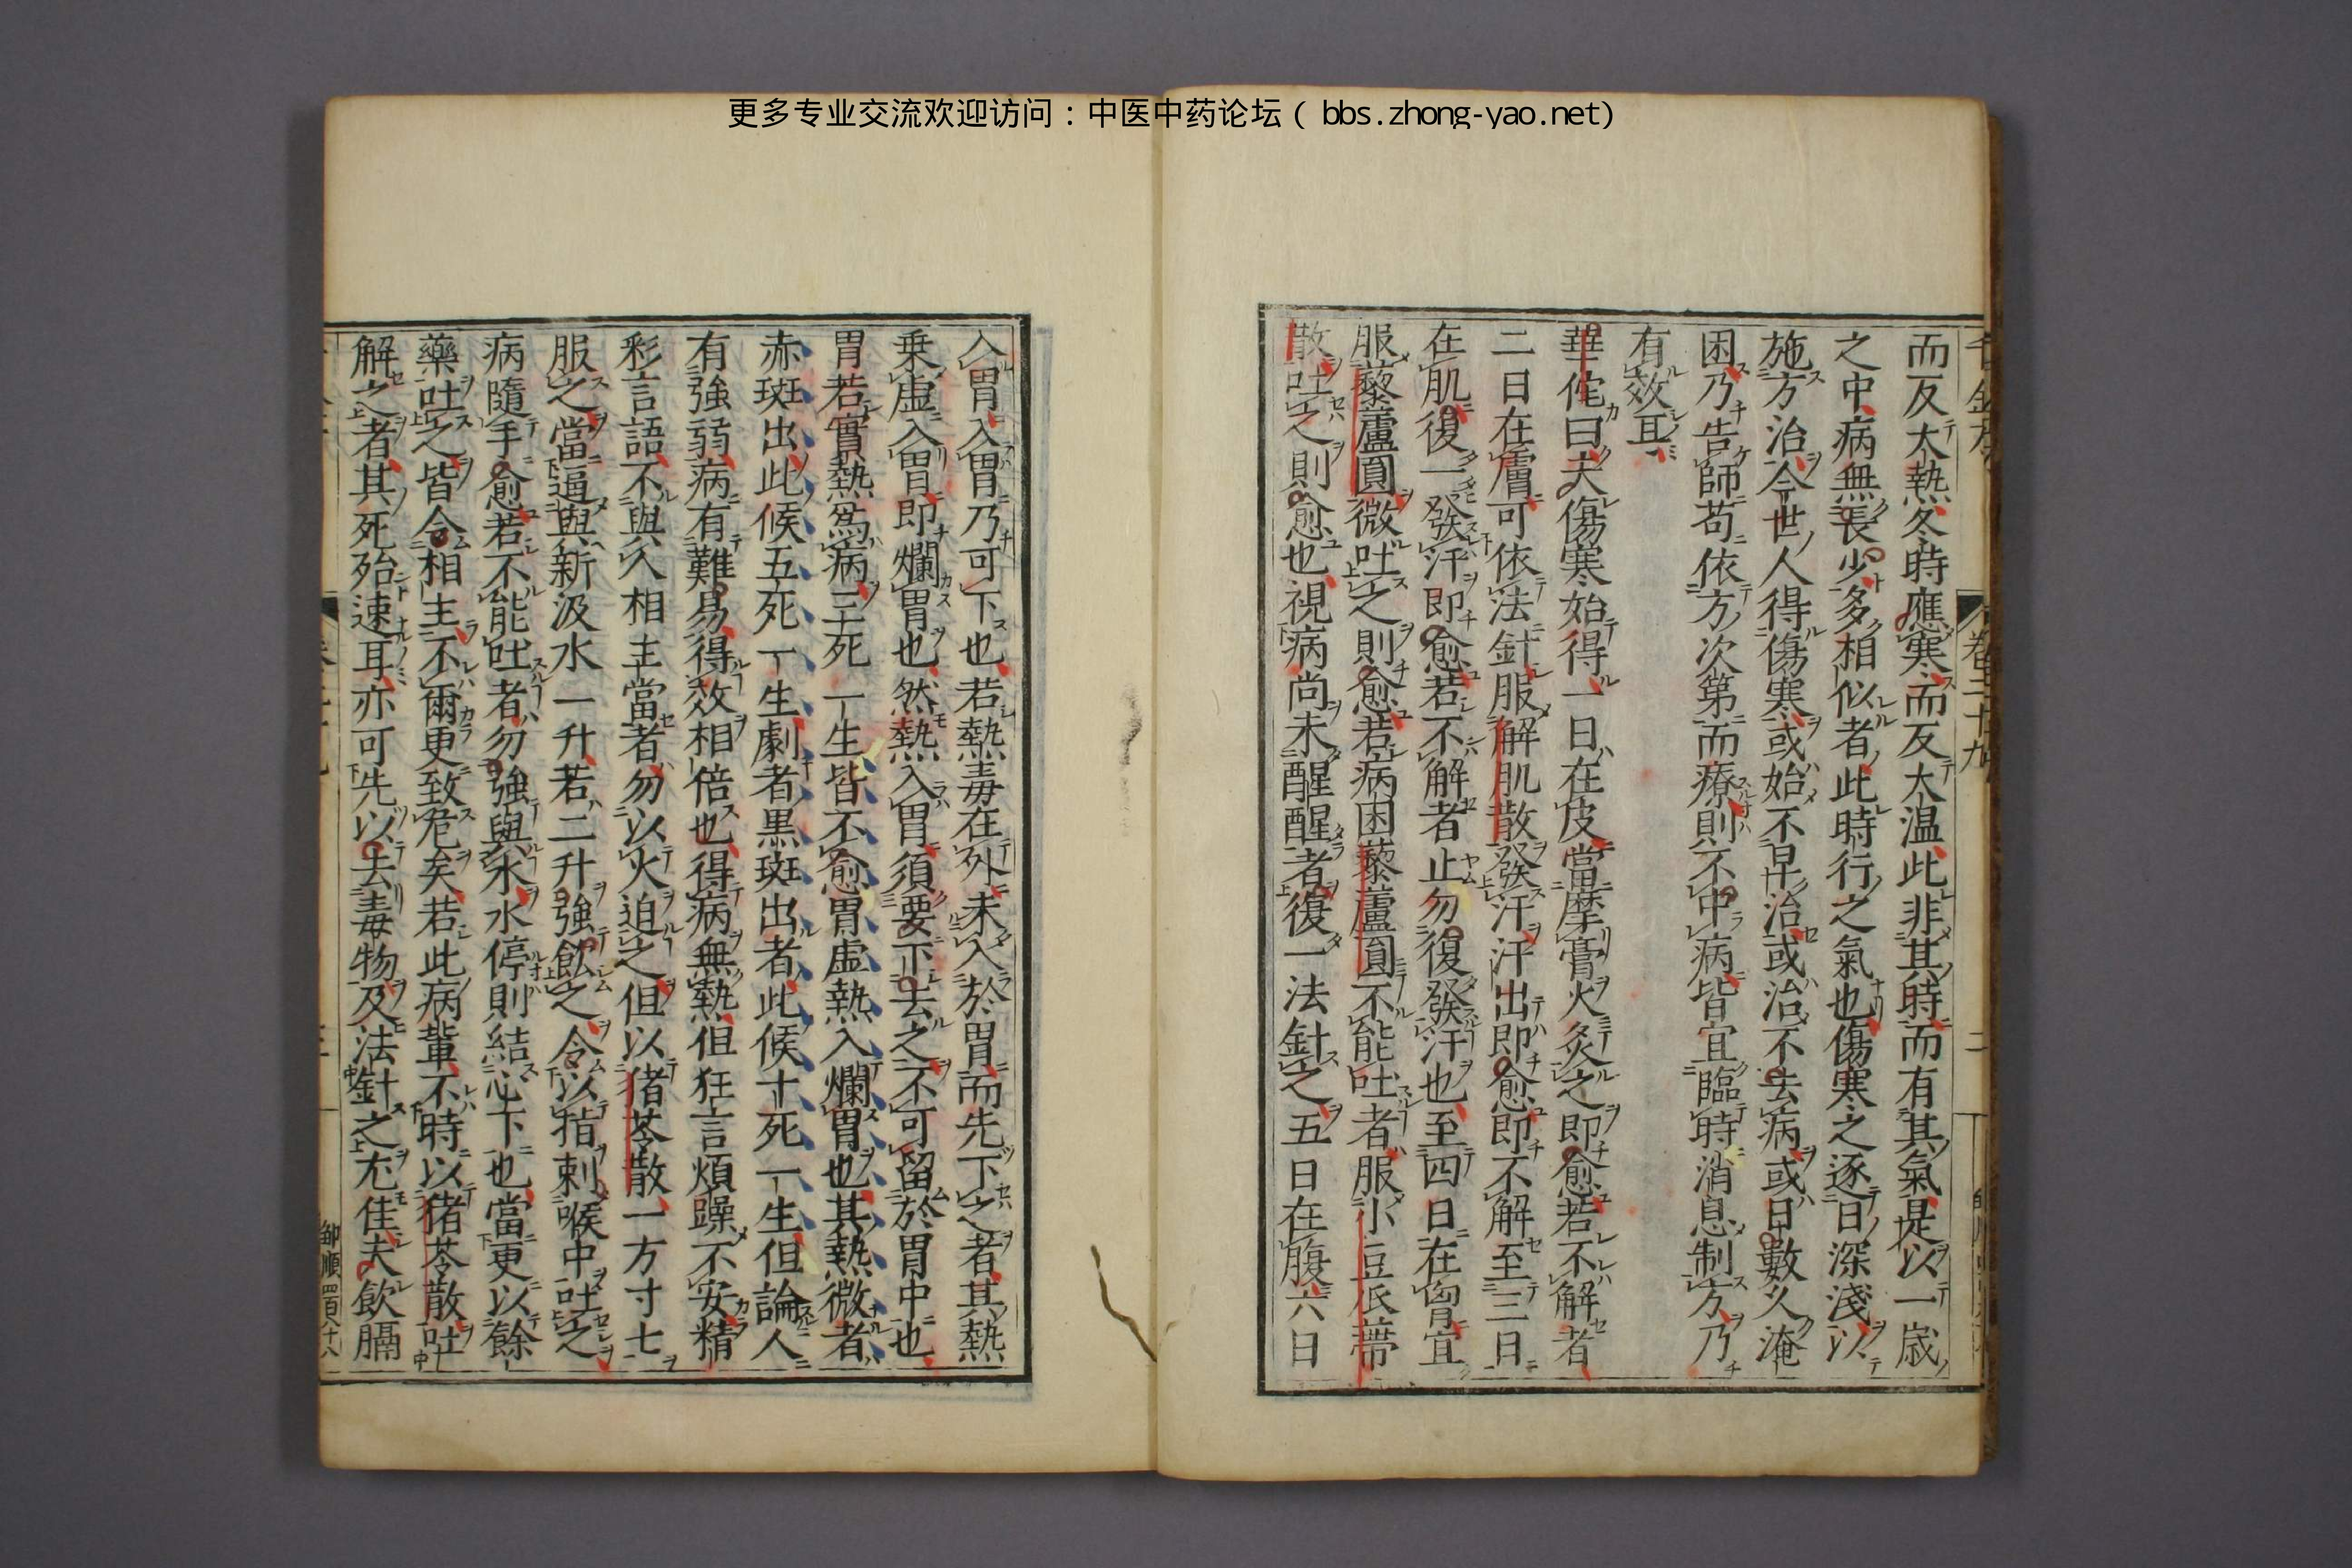 更多专业交流欢迎访问：中医中药论坛（bbs.zhong-yao.net）
卷二十九
二
而反太熱冬時應寒而反太温此非其時而有其氣是以一歳
之中病無長少多相似者此時行之氣也傷寒之逐日深淺以
施方治今世人得傷寒或始不早治或治不去病或日數久淹
困乃告師苟依方次第而療則不中病皆宜臨時消息制方乃
有效耳
華佗曰夫傷寒始得一日在皮當摩膏火灸之即愈若不解者
二日在膚可依法針服解肌散發汗汗出即愈即不解至三日
在肌復一發汗即愈若不解者止勿復發汗也至四日在胷宜
服藜蘆圓微吐之則愈若病困藜蘆圓不能吐者服小豆瓜蒂
散吐之則愈也視病尚未醒醒者復一法針之五日在腹六日
入胃入胃乃可下也若熱毒在外未入於胃而先下之者其熱
乗虛入胃即爛胃也然熱入胃須要下去之不可留於胃中也
胃若實熱爲病三死一生皆不愈胃虛熱入爛胃也其熱微者
赤斑出此候五死一生劇者黑斑出者此候十死一生但論人
有強弱病有難易得效相倍也得病無熱但狂言煩躁不安精
彩言語不與人相主當者勿以火迫之但以猪苓散一方寸七
服之當逼與新汲水一升若二升強飲之令以指刺喉中吐之
病隨手愈若不能吐者勿強與水水停則結心下也當更以餘
藥吐之皆令相主不爾更致危矣若此病軰不時以猪苓散吐
解之者其死殆速耳亦可先以去毒物及法針之尤佳夫飲膈